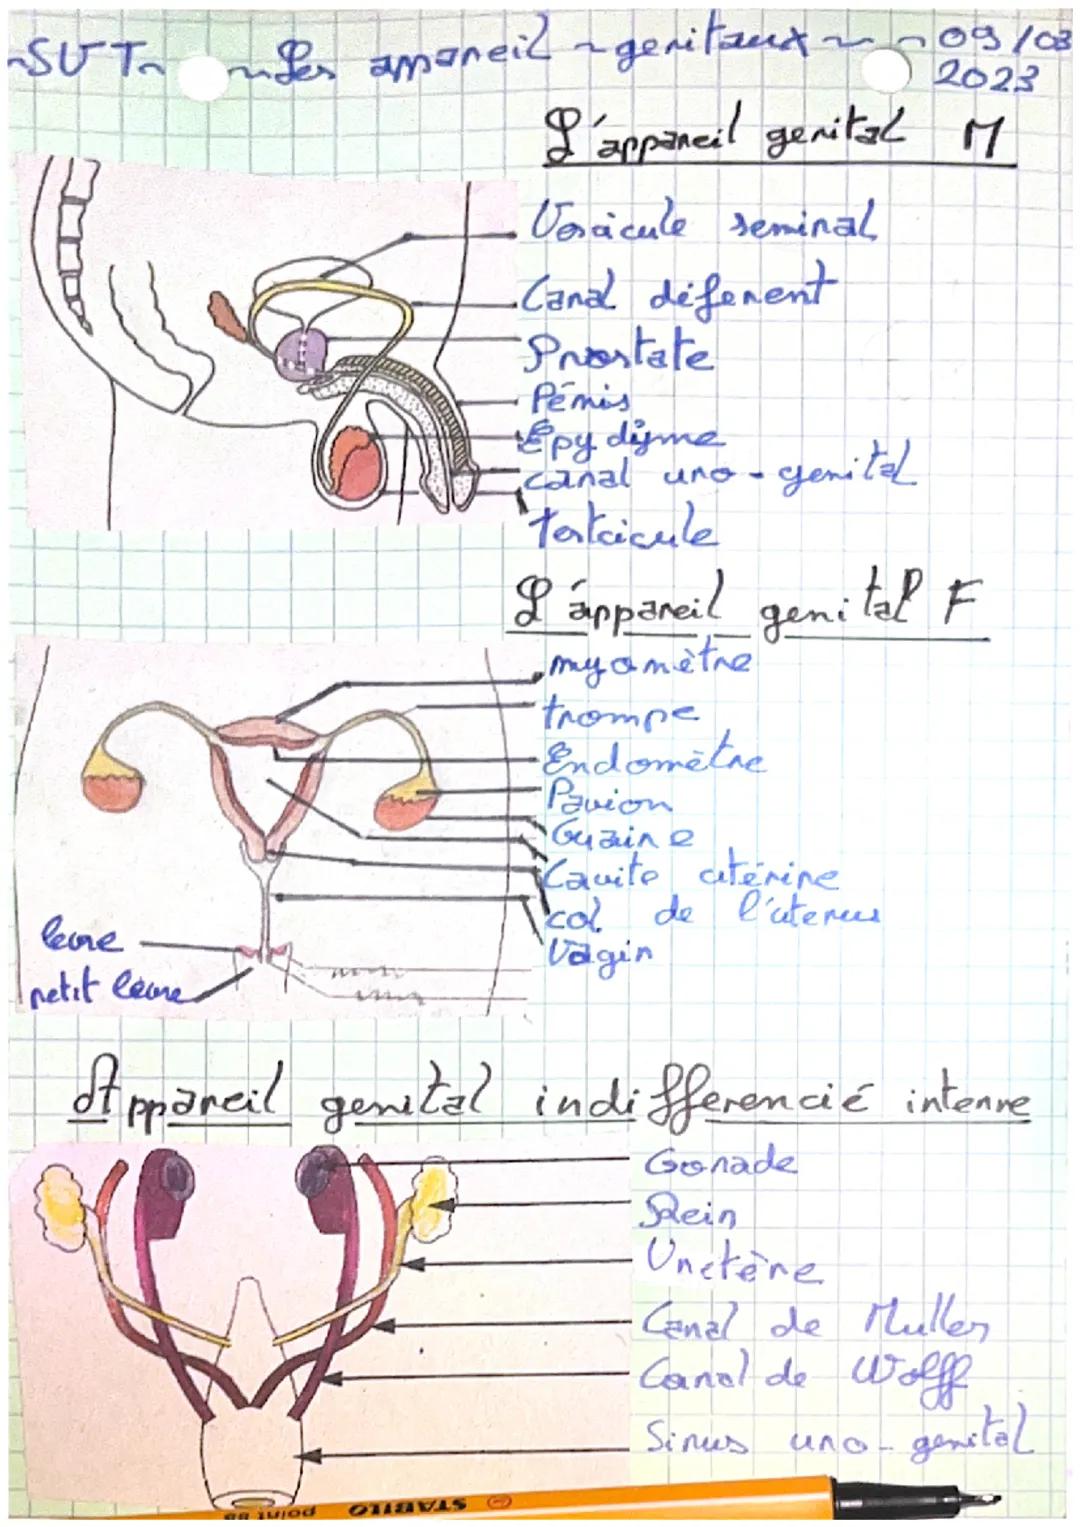 ~SVT~ ~Les appareil ~genitaux~ ~09/03
2023
L'appareil genital M
Vésicule seminal
Canal déferent
Prostate
Pénis
Épydidyme
canal uro-genital
Testicule
L'appareil genital F
myomètre
trompe
Endomètre
Pavion
Guaine
Cavite utérine
col de l'uterus
Vagin
levre
petit levre
Appareil genital indifferencié interne
Gonade
Rein
Uretère
Canal de Muller
Canal de Wolff
Sinus uro-genital
STABILO
point 88